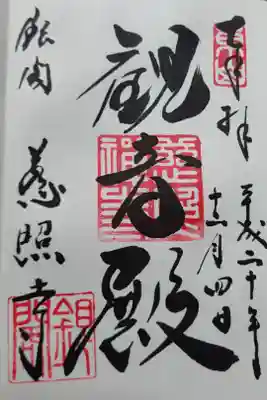 奉拝
平成二十年
月四日
観音殿
銀閣 慈照寺
銀閣